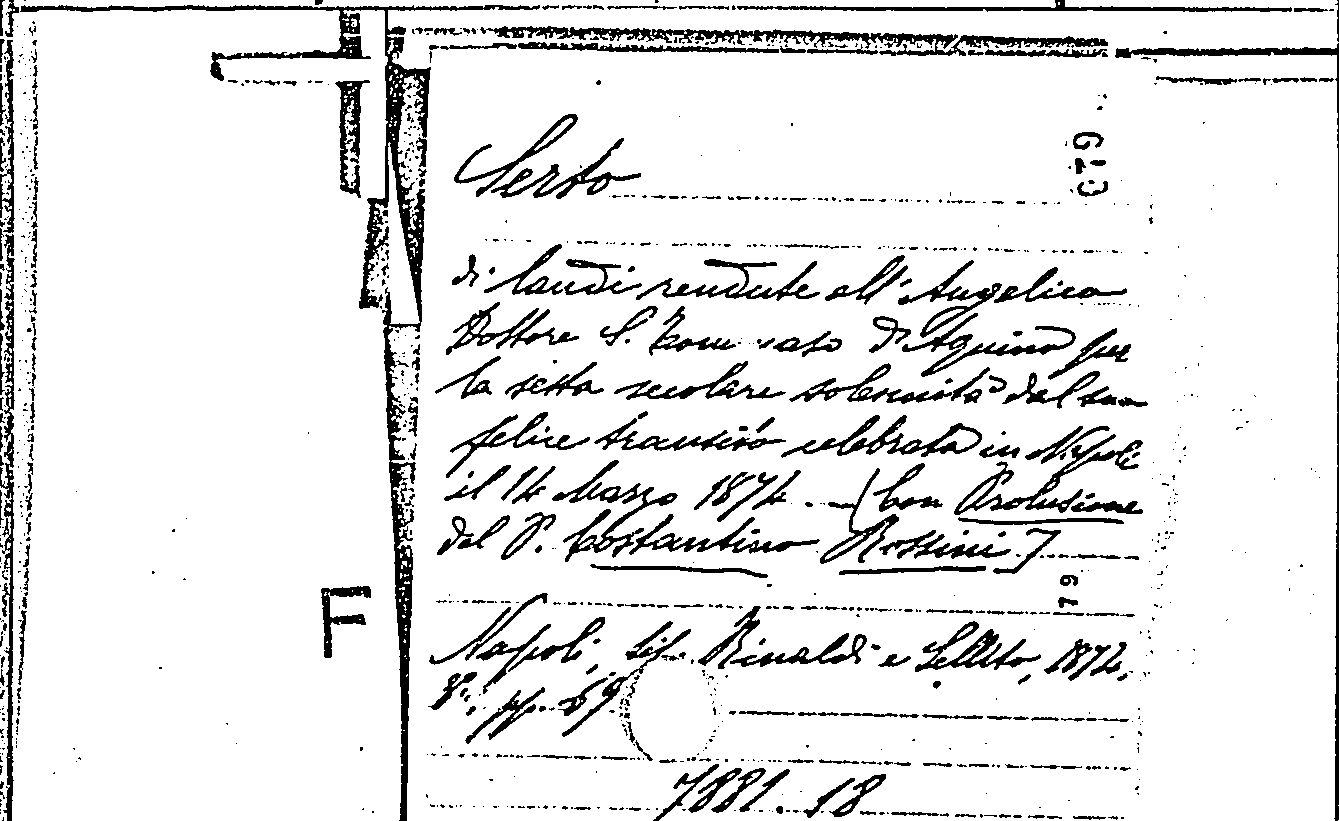 Serto
079
di laudi rendute all'Angelico
Dottore S. Tommaso d'Aquino per
la sesta secolare solennità del suo
felice transito celebrata in Napoli
il 14 Marzo 1874. — (Con Prolusione
del P. Costantino Rossini]
79
F
Napoli, tip. Rinaldi e Sellitto, 1874.
8°, pp. 59
7881.18